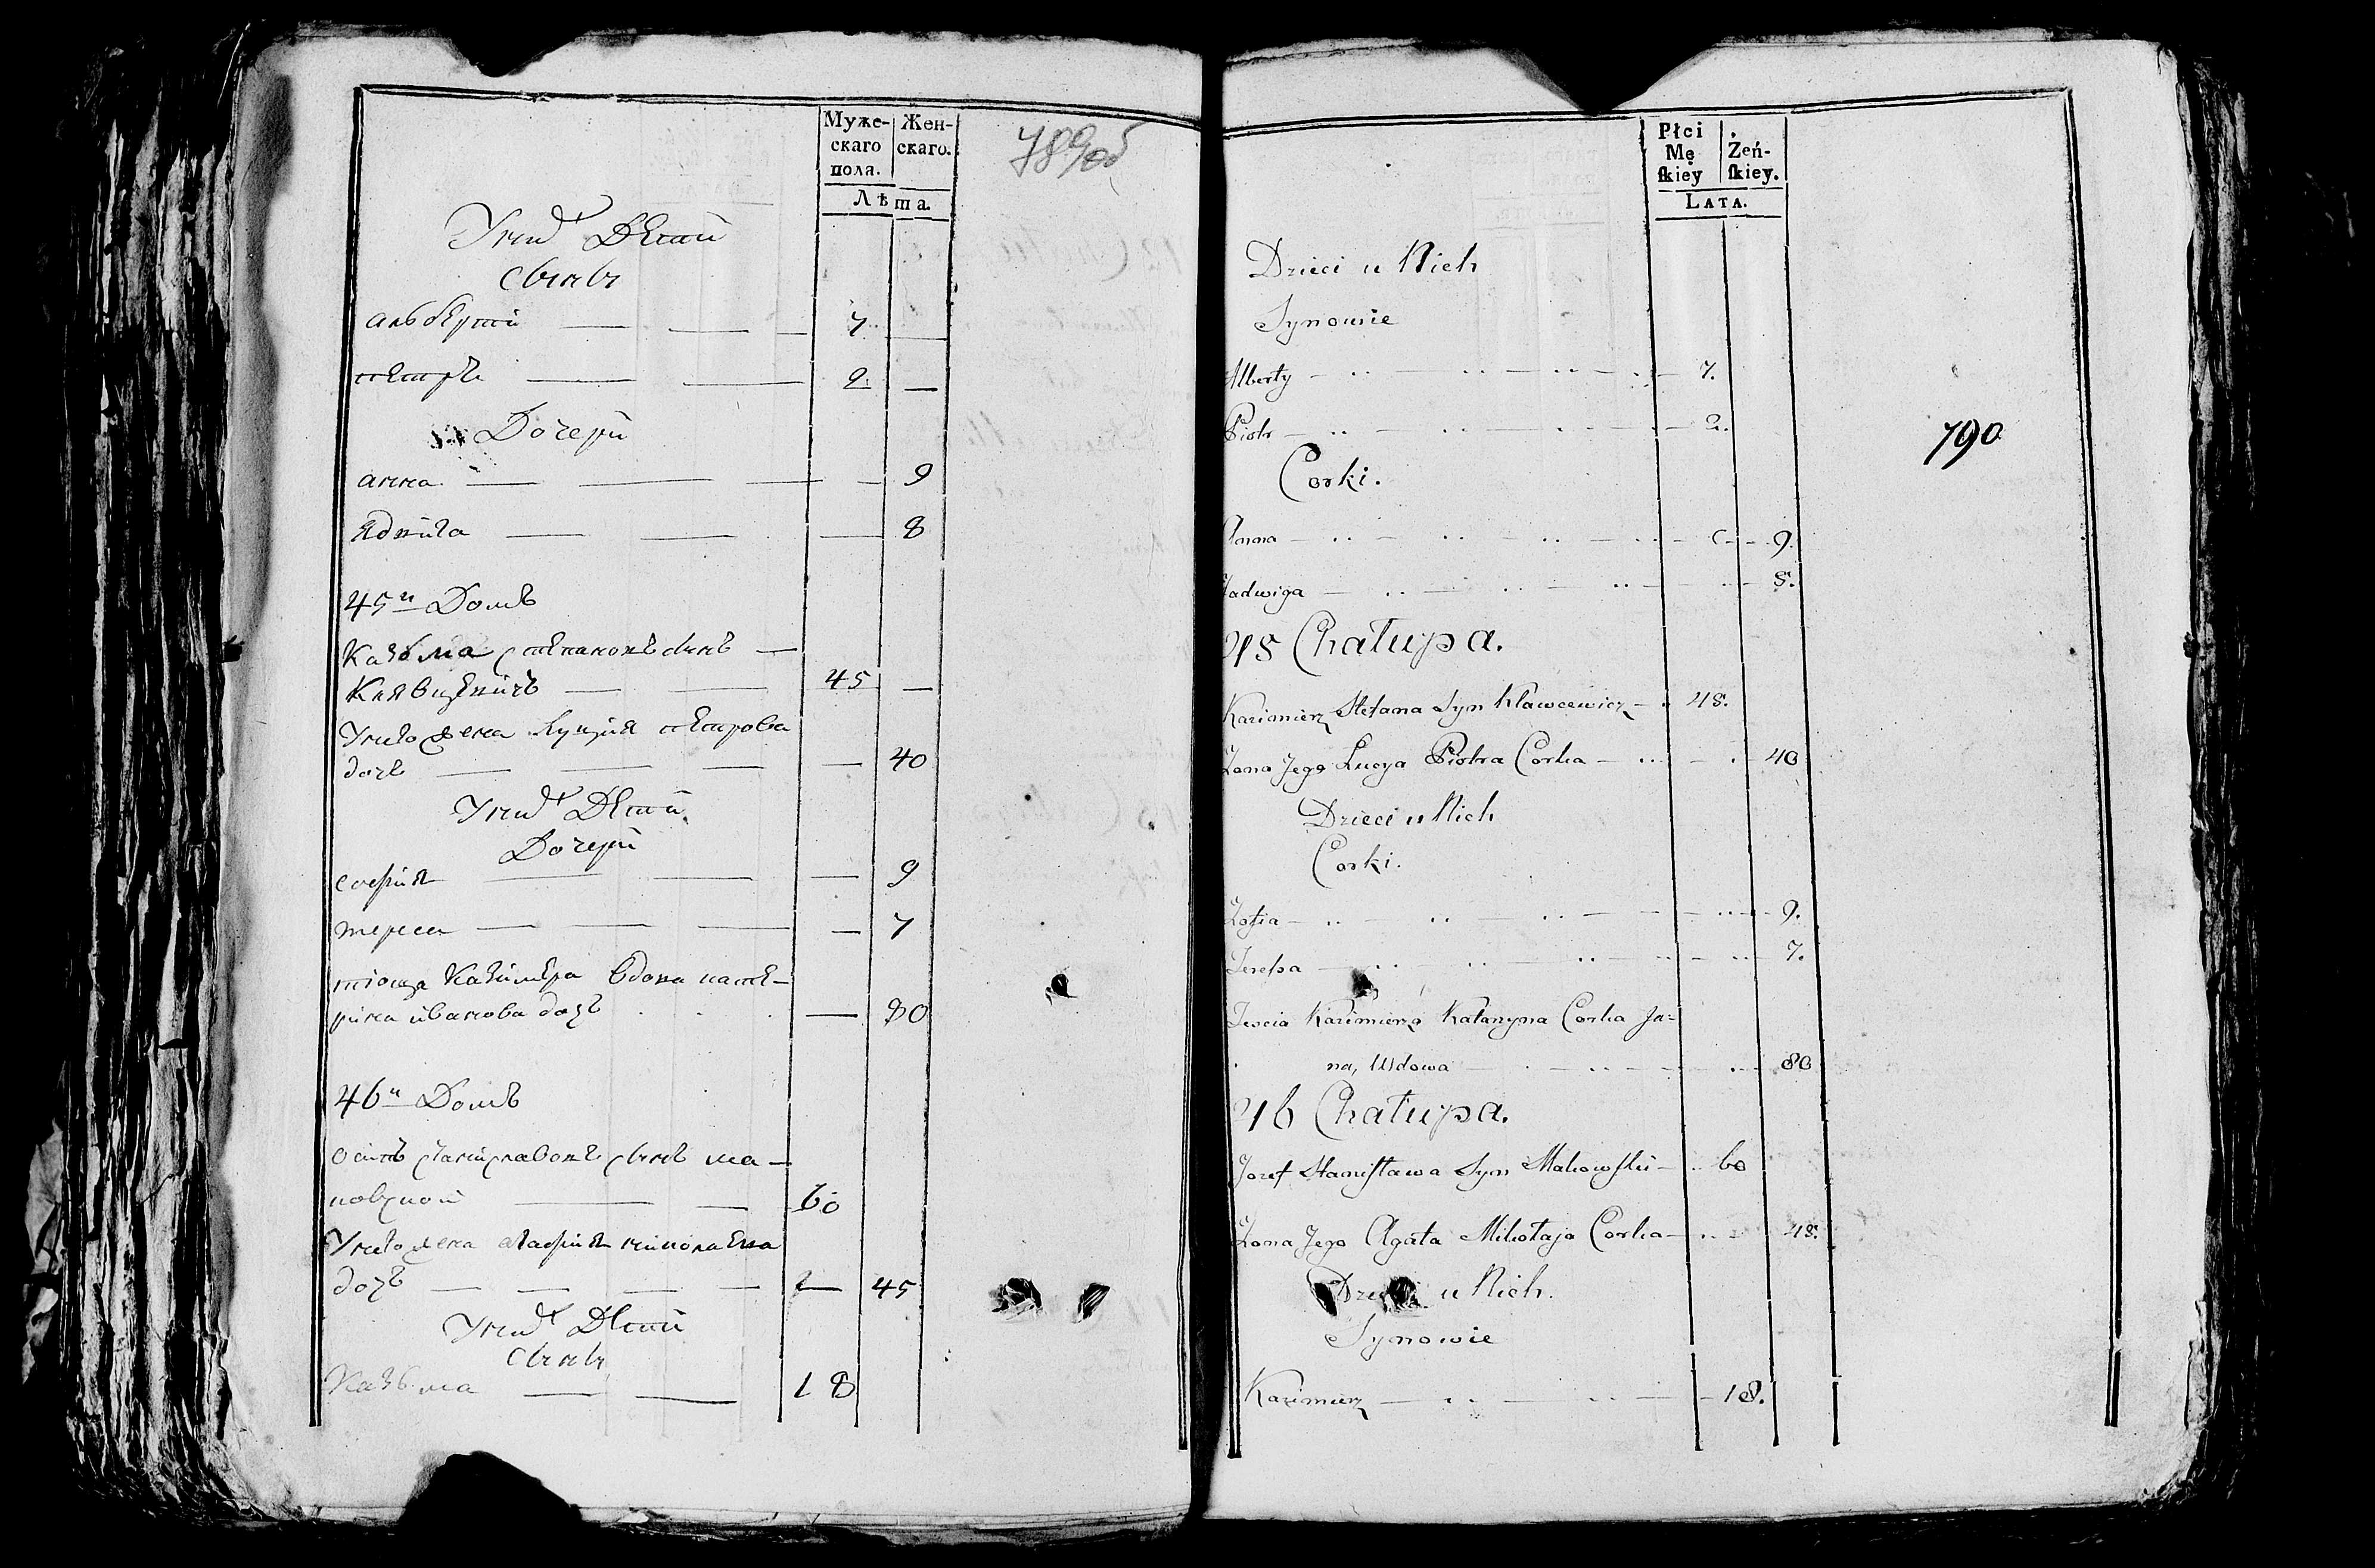 Муже-
скаго
пола.
Жен-
скаго.
Лѣта.
789об
У нихъ Дѣти
Сыны
Альбертй 7.
Петръ 2.
Дочери
анна 9
Ядвига 8
45й Домъ
Казьма степановъ сынъ
Клявцевичъ 45
У него жена Луция петрова
дочь 40
У нихъ Дѣти
Дочери
софия 9
тереса 7
тіоща Казимера вдова кате-
рина иванова дочь 80
46й Домъ
Осипъ станиславовъ сынъ ма-
ковской 60
У него жена агафия николаева
дочь 45
У нихъ Дѣти
Сыны
Казьма 18
Płci
Mę
skiey
Żeń-
skiey.
LATA.
790
Dzieci u Nich
Synowie
Alberty 7.
Piotr 2.
Corki.
Anna 9.
Jadwiga 8.
45 Chałupa.
Kazimierz Stefana Syn Klawcewicz 45.
Zona Jego Lucya Piotra Corka 40
Dzieci u Nich
Corki.
Zofia 9.
Teressa 7.
Tescia Kazimierza Katarzyna Corka Ja=
na, Wdowa 80
46 Chałupa.
Jozef Stanisława Syn Makowski 60
Zona Jego Agata Mikołaja Corka 45.
Dzieci u Nich.
Synowie
Kazimierz 18.